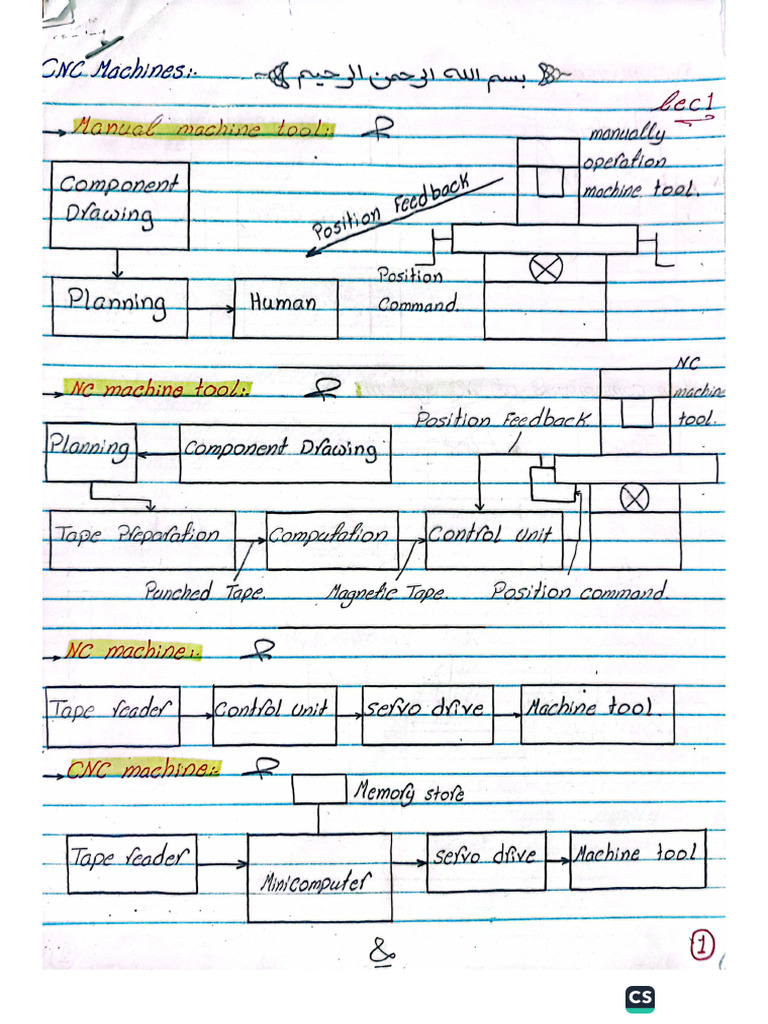 CNC Machines:-
بسم الله الرحمن الرحيم
Lec1
Manual machine tool:
manually
operation
machine tool.
Component
Drawing
Position Feedback
Position
Command.
Planning
Human
NC machine tool:-
NC
machine
tool.
Position Feedback
Planning
Component Drawing
Tape Preparation
Computation
Control Unit
Punched Tape.
Magnetic Tape.
Position command.
NC machine:-
Tape reader
Control Unit
Servo drive
Machine tool.
CNC machine:-
Memory store
Tape reader
Minicomputer
Servo drive
Machine tool
&
1
CS